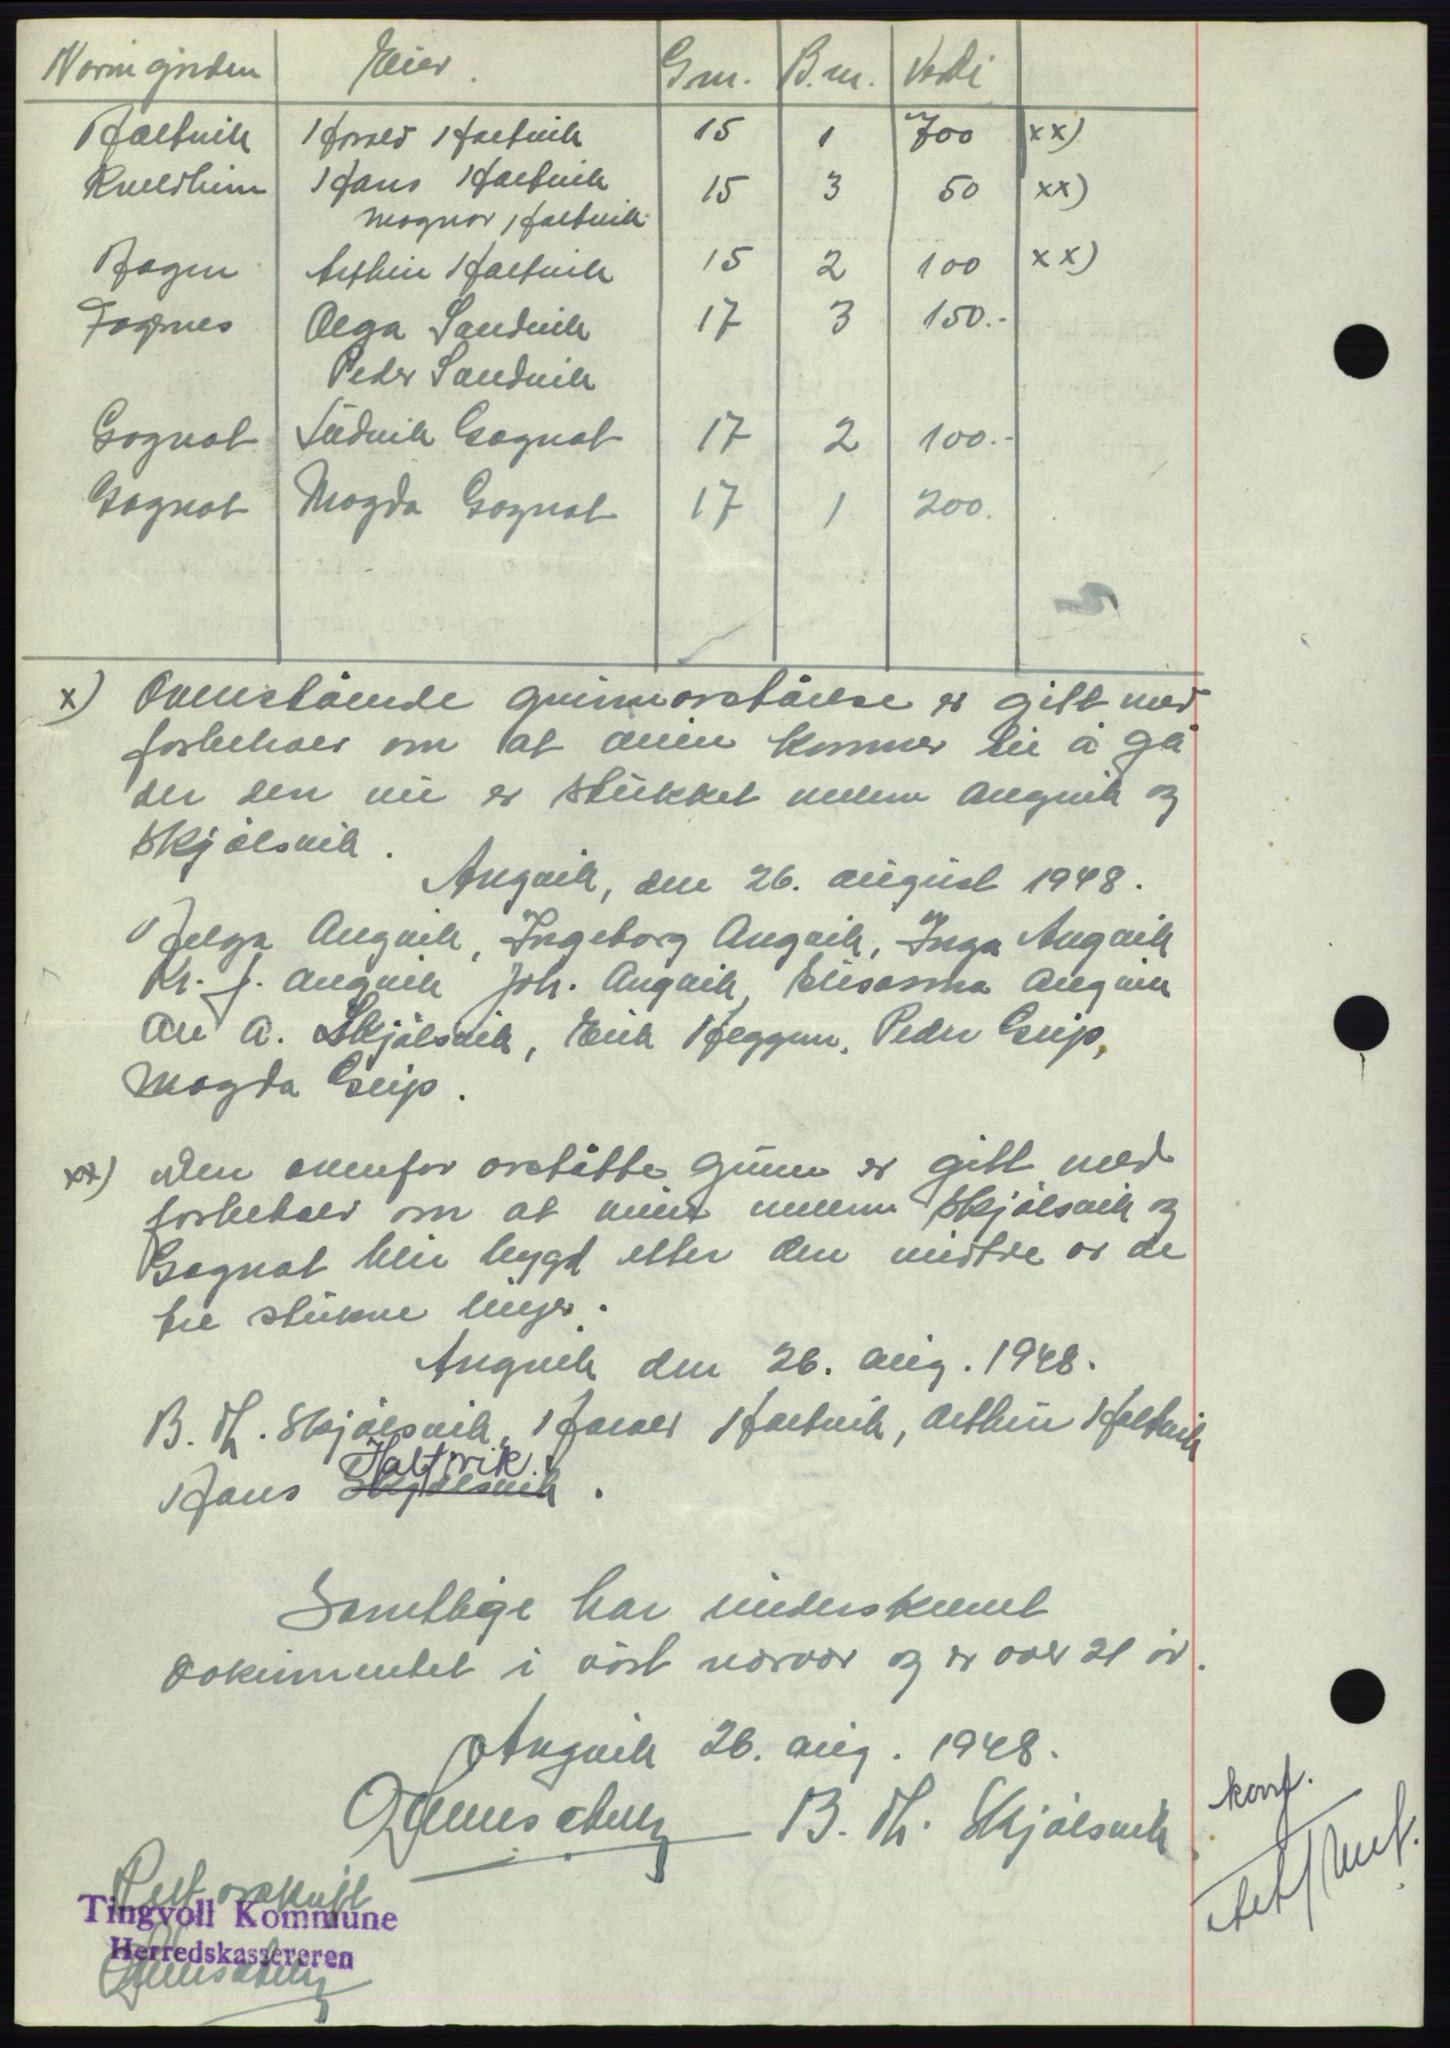 Navn gården Eier. Gnr. B.nr. Verdi
Haltvik Harald Haltvik 15 1 700 xx)
Kveldheim Hans Haltvik 15 3 50 xx)
Magnar Haltvik
Hagen Arthur Haltvik 15 2 100 xx)
Fagnes Olga Sandvik 17 3 150.-
Peder Sandvik
Gagnat Ludvik Gagnat 17 2 100.-
Gagnat Magda Gagnat 17 1 200.
x) Ovenstående grunnavståelse er gitt med
forbehold om at veien kommer til å gå
der den nu er stukket mellem Angvik og
Skjølsvik.
Angvik, den 26. august 1948.
Helga Angvik, Ingeborg Angvik, Inga Angvik
Kr. J. Angvik Joh. Angvik, Angvik
A. Skjølsvik, Erik Heggem, Peder Grip,
Magda Grip.
xx) Den ovenfor avståtte grunn er gitt med
forbehold om at veien mellem Skjølsvik og
Gagnat blir bygd etter den midtre av de
tre stukne linjer.
Angvik den 26. aug. 1948.
B. Th. Skjølsvik, Harald Haltvik, Arthur Haltvik
Haltvik.
Hans Skjølsvik.
Samtlige har underskrevet
dokumentet i vårt nærvær og er over 21 år.
Angvik 26. aug. 1948.
B. Th. Skjølsvik
konf.
Rett avskrift
Tingvoll Kommune
Herredskassereren